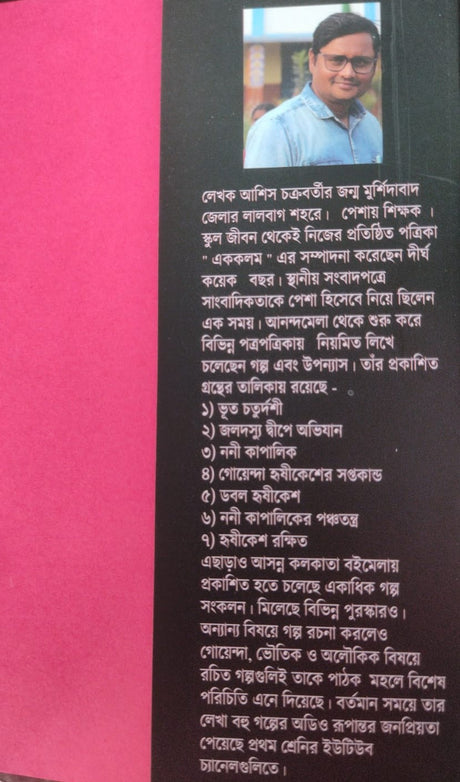 লেখক আশিস চক্রবর্তীর জন্ম মুর্শিদাবাদ
জেলার লালবাগ শহরে। পেশায় শিক্ষক ।
স্কুল জীবন থেকেই নিজের প্রতিষ্ঠিত পত্রিকা
" এককলম " এর সম্পাদনা করেছেন দীর্ঘ
কয়েক বছর। স্থানীয় সংবাদপত্রে
সাংবাদিকতাকে পেশা হিসেবে নিয়ে ছিলেন
এক সময়। আনন্দমেলা থেকে শুরু করে
বিভিন্ন পত্রপত্রিকায় নিয়মিত লিখে
চলেছেন গল্প এবং উপন্যাস। তাঁর প্রকাশিত
গ্রন্থের তালিকায় রয়েছে -
১) ভূত চতুর্দশী
২) জলদস্যু দ্বীপে অভিযান
৩) ননী কাপালিক
৪) গোয়েন্দা হৃষীকেশের সপ্তকান্ড
৫) ডবল হৃষীকেশ
৬) ননী কাপালিকের পঞ্চতন্ত্র
৭) হৃষীকেশ রক্ষিত
এছাড়াও আসন্ন কলকাতা বইমেলায়
প্রকাশিত হতে চলেছে একাধিক গল্প
সংকলন। মিলেছে বিভিন্ন পুরস্কারও।
অন্যান্য বিষয়ে গল্প রচনা করলেও
গোয়েন্দা, ভৌতিক ও অলৌকিক বিষয়ে
রচিত গল্পগুলিই তাকে পাঠক মহলে বিশেষ
পরিচিতি এনে দিয়েছে। বর্তমান সময়ে তার
লেখা বহু গল্পের অডিও রূপান্তর জনপ্রিয়তা
পেয়েছে প্রথম শ্রেনির ইউটিউব
চ্যানেলগুলিতে।